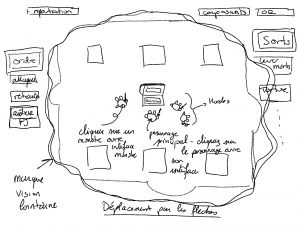 réputation
composants
OR
ordre
Sorts
attaque
Hordes
cliquez sur un
monstre avec
interface
monstre
personnage
principal - cliquez sur
le personnage avec
son
interface
PJ
musique
Vision
lointaine
Déplacement par les flèches